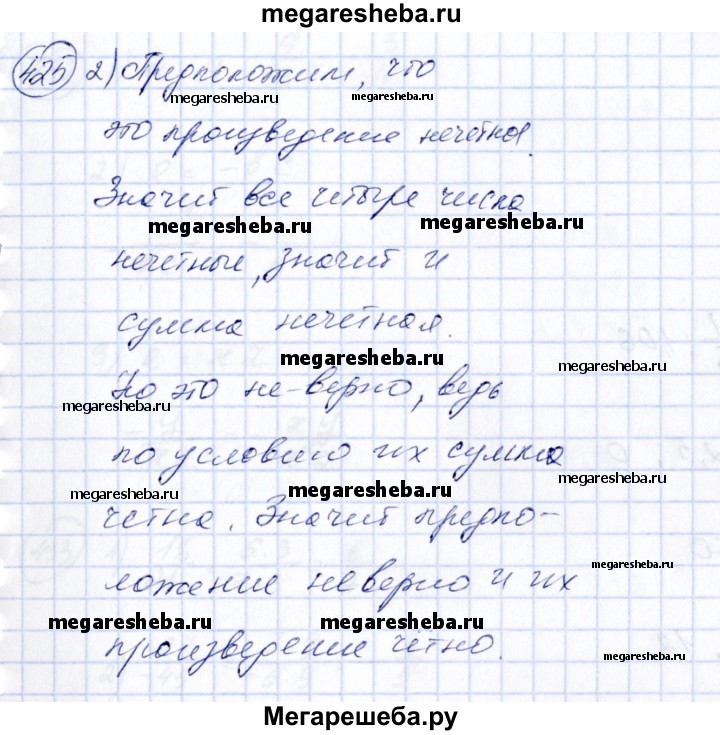 megaresheba.ru
425 2) Предположим, что
megaresheba.ru megaresheba.ru
это произведение нечетное.
Значит все четыре числа
megaresheba.ru megaresheba.ru
нечетные, значит и
сумма нечетная.
megaresheba.ru megaresheba.ru
Но это не-верно, ведь
megaresheba.ru
по условию их сумма
megaresheba.ru megaresheba.ru megaresheba.ru
четна. Значит предпо-
megaresheba.ru
ложение неверно и их
megaresheba.ru megaresheba.ru
произведение четно.
megaresheba.ru
Мегарешеба.ру